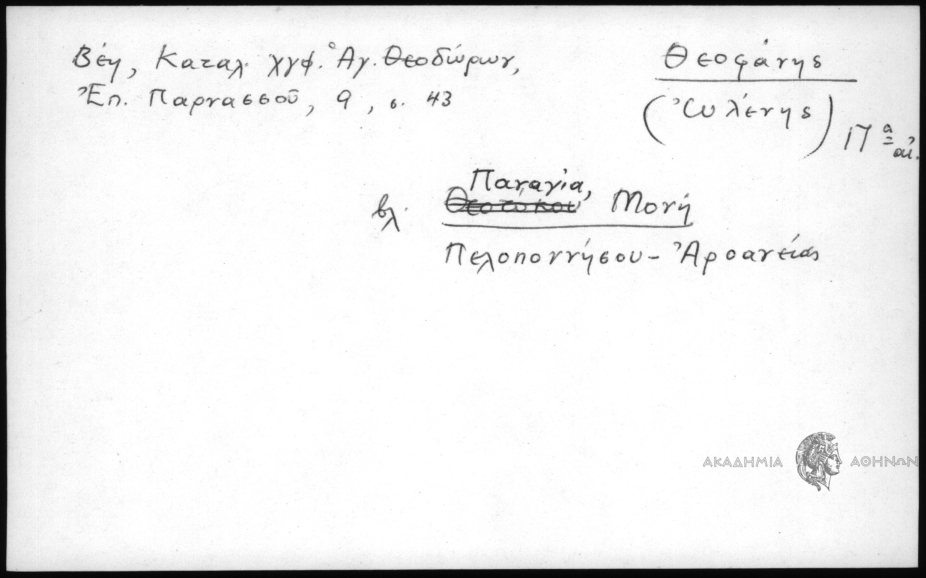 Βέη, Καταλ. χγφ. Ἁγ. Θεοδώρων,
Ἐπ. Παρνασσοῦ, 9, σ. 43
Θεοφάνης
(Ὠλένης) 17ᵃ αἰ.
βλ. Παναγία, Μονή
Πελοποννήσου - Ἀροανείας
ΑΚΑΔΗΜΙΑ ΑΘΗΝΩΝ